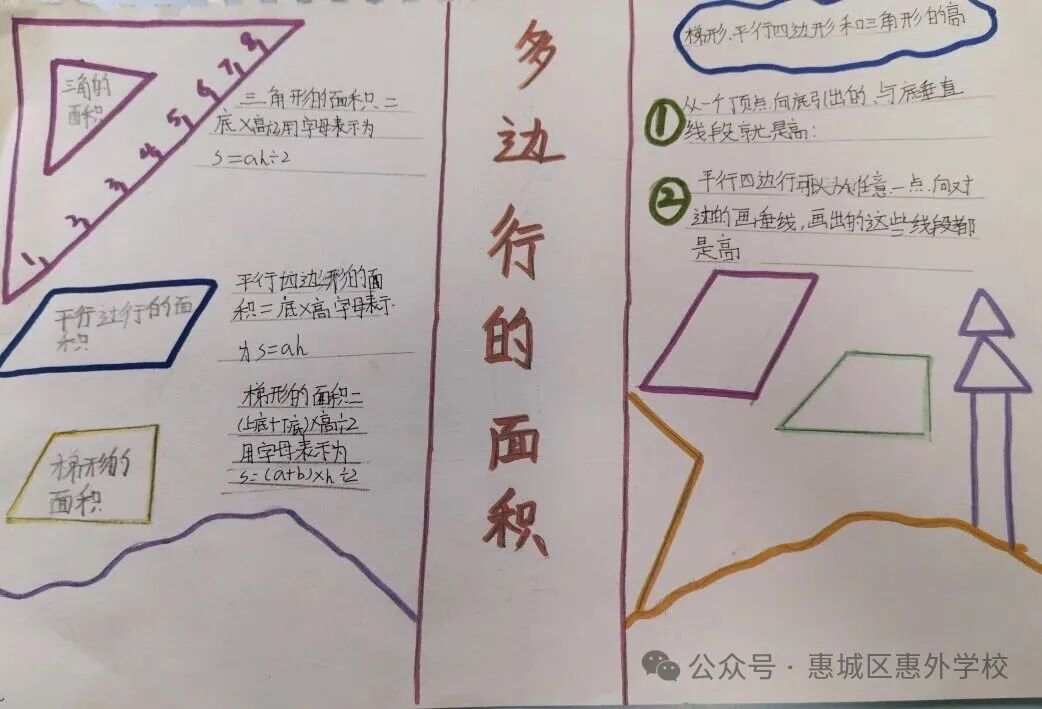 三角的
面积
1
2
3
4
5
6
7
8
三角形的面积=
底×高÷2用字母表示为
S=ah÷2
平行边行的面
积
平行四边形的面
积=底×高,字母表示
为S=ah
梯形的
面积
梯形的面积=
(上底+下底)×高÷2
用字母表示为
S=(a+b)×h÷2
多边行的面积
梯形、平行四边形和三角形的高
①从一个顶点向底引出的、与底垂直
线段就是高:
②平行四边行可以从任意一点向对
边的画垂线,画出的这些线段都
是高
公众号·惠城区惠外学校